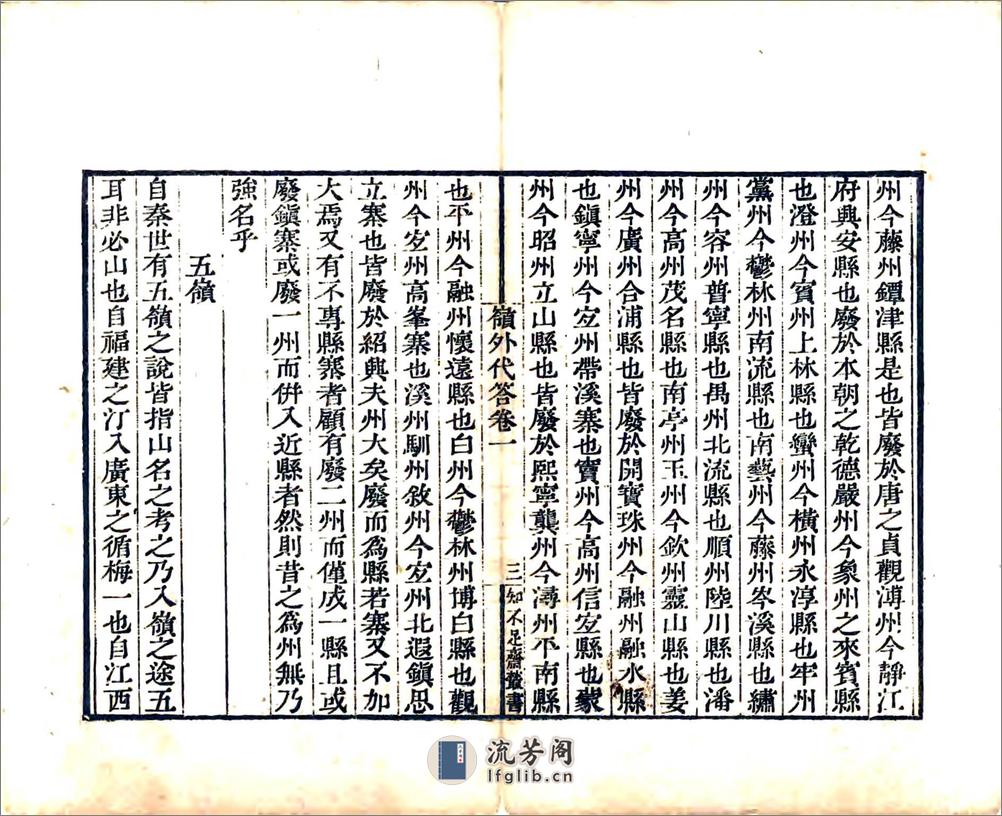 州今藤州鐔津縣是也皆廢於唐之貞觀溥州今靜江
府興安縣也廢於本朝之乾德嚴州今象州之來賓縣
也澄州今賓州上林縣也蠻州今橫州永淳縣也牢州
黨州今鬱林州南流縣也南藝州今藤州岑溪縣也繡
州今容州普寧縣也禺州北流縣也順州陸川縣也潘
州今高州茂名縣也南亭州玉州今欽州靈山縣也姜
州今廣州合浦縣也皆廢於開寶珠州今融州融水縣
也鎭寧州今宐州帶溪寨也竇州今高州信宐縣也蒙
州今昭州立山縣也皆廢於熙寧龔州今潯州平南縣
嶺外代答卷一
三
知不足齋叢書
也平州今融州懷遠縣也白州今鬱林州博白縣也觀
州今宐州高峯寨也溪州馴州敘州今宐州北遐鎭思
立寨也皆廢於紹興夫州大矣廢而爲縣若寨又不加
大焉又有不專縣寨者顧有廢二州而僅成一縣且或
廢鎭寨或廢一州而併入近縣者然則昔之爲州無乃
強名乎
五嶺
自秦世有五嶺之說皆指山名之考之乃入嶺之途五
耳非必山也自福建之汀入廣東之循梅一也自江西
流芳阁
lfglib.cn